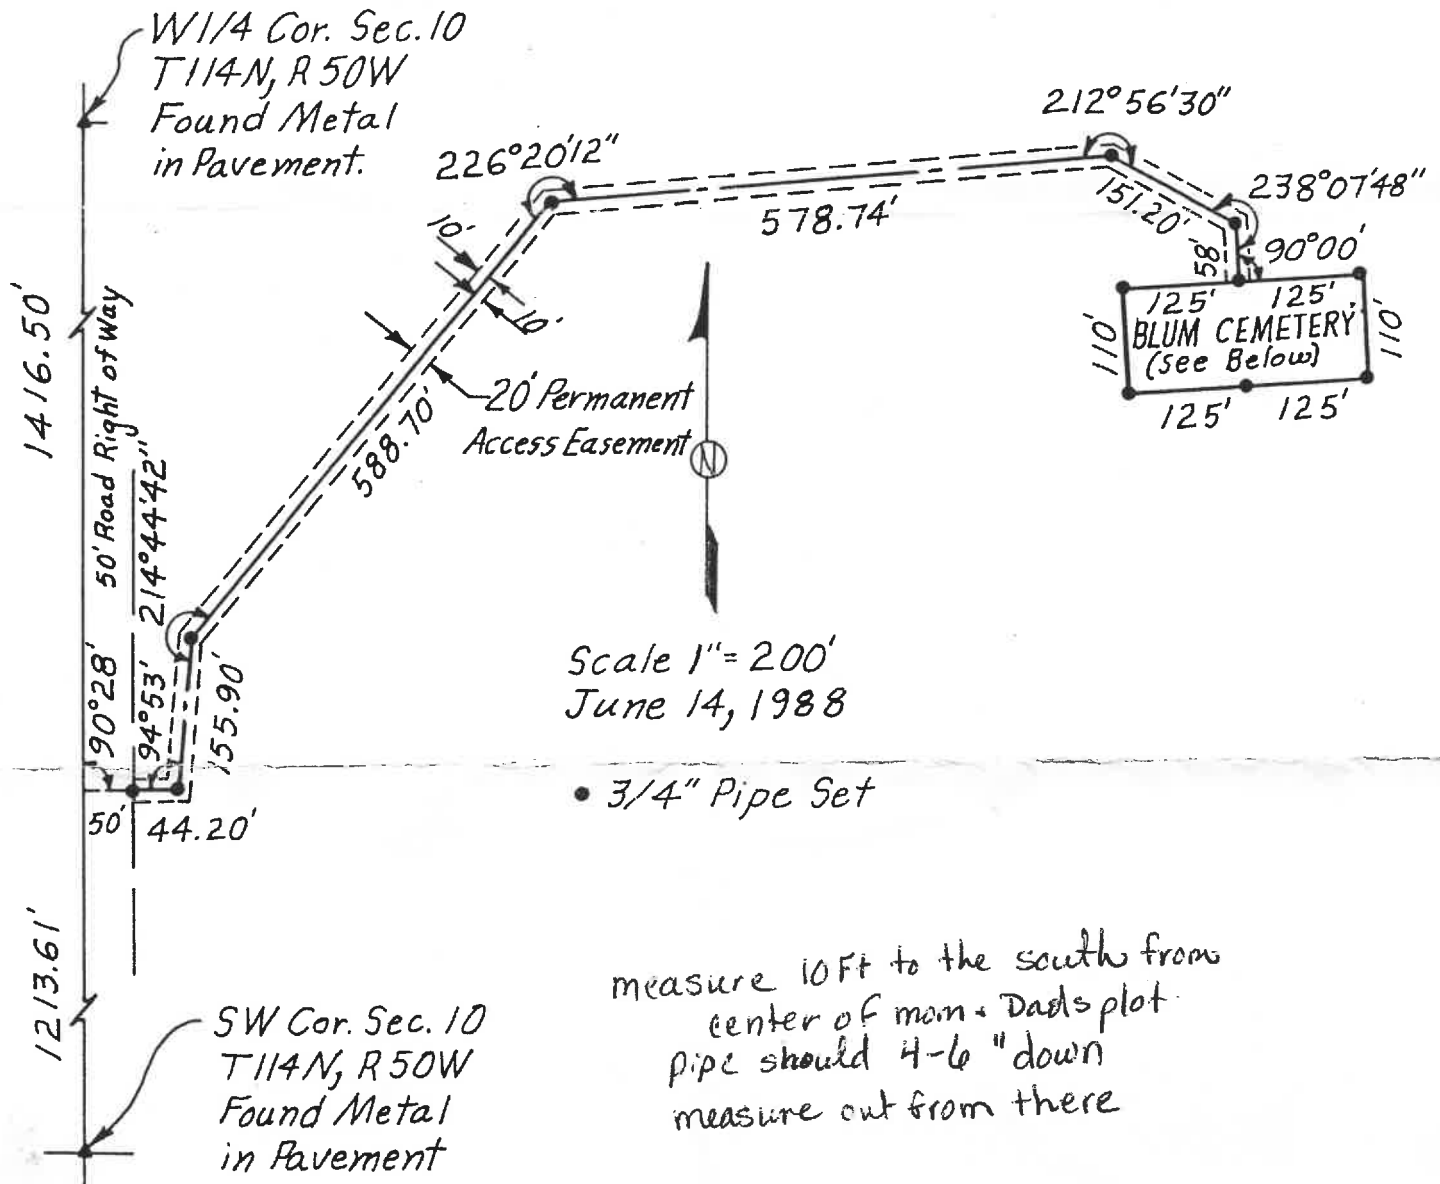 W1/4 Cor. Sec. 10
T114N, R50W
Found Metal
in Pavement.
212°56'30"
226°20'12"
238°07'48"
10'
578.74'
151.20'
58'
90°00'
125' 125'
10'
110'
BLUM CEMETERY
(See Below)
110'
125' 125'
1416.50'
50' Road Right of Way
20' Permanent
Access Easement
588.70'
N
214°44'42"
Scale 1"= 200'
June 14, 1988
90°28'
94°53'
155.90'
3/4" Pipe Set
50' 44.20'
1213.61'
SW Cor. Sec. 10
T114N, R50W
Found Metal
in Pavement
measure 10Ft to the south from
center of mom & Dads plot
pipe should 4-6" down
measure out from there